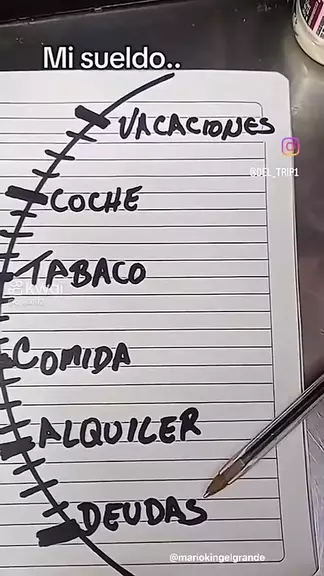 Mi sueldo..
VACACIONES
@DEL_TRIP1
COCHE
TABACO
kwai
COMIDA
ALQUILER
DEUDAS
@mariokingelgrande